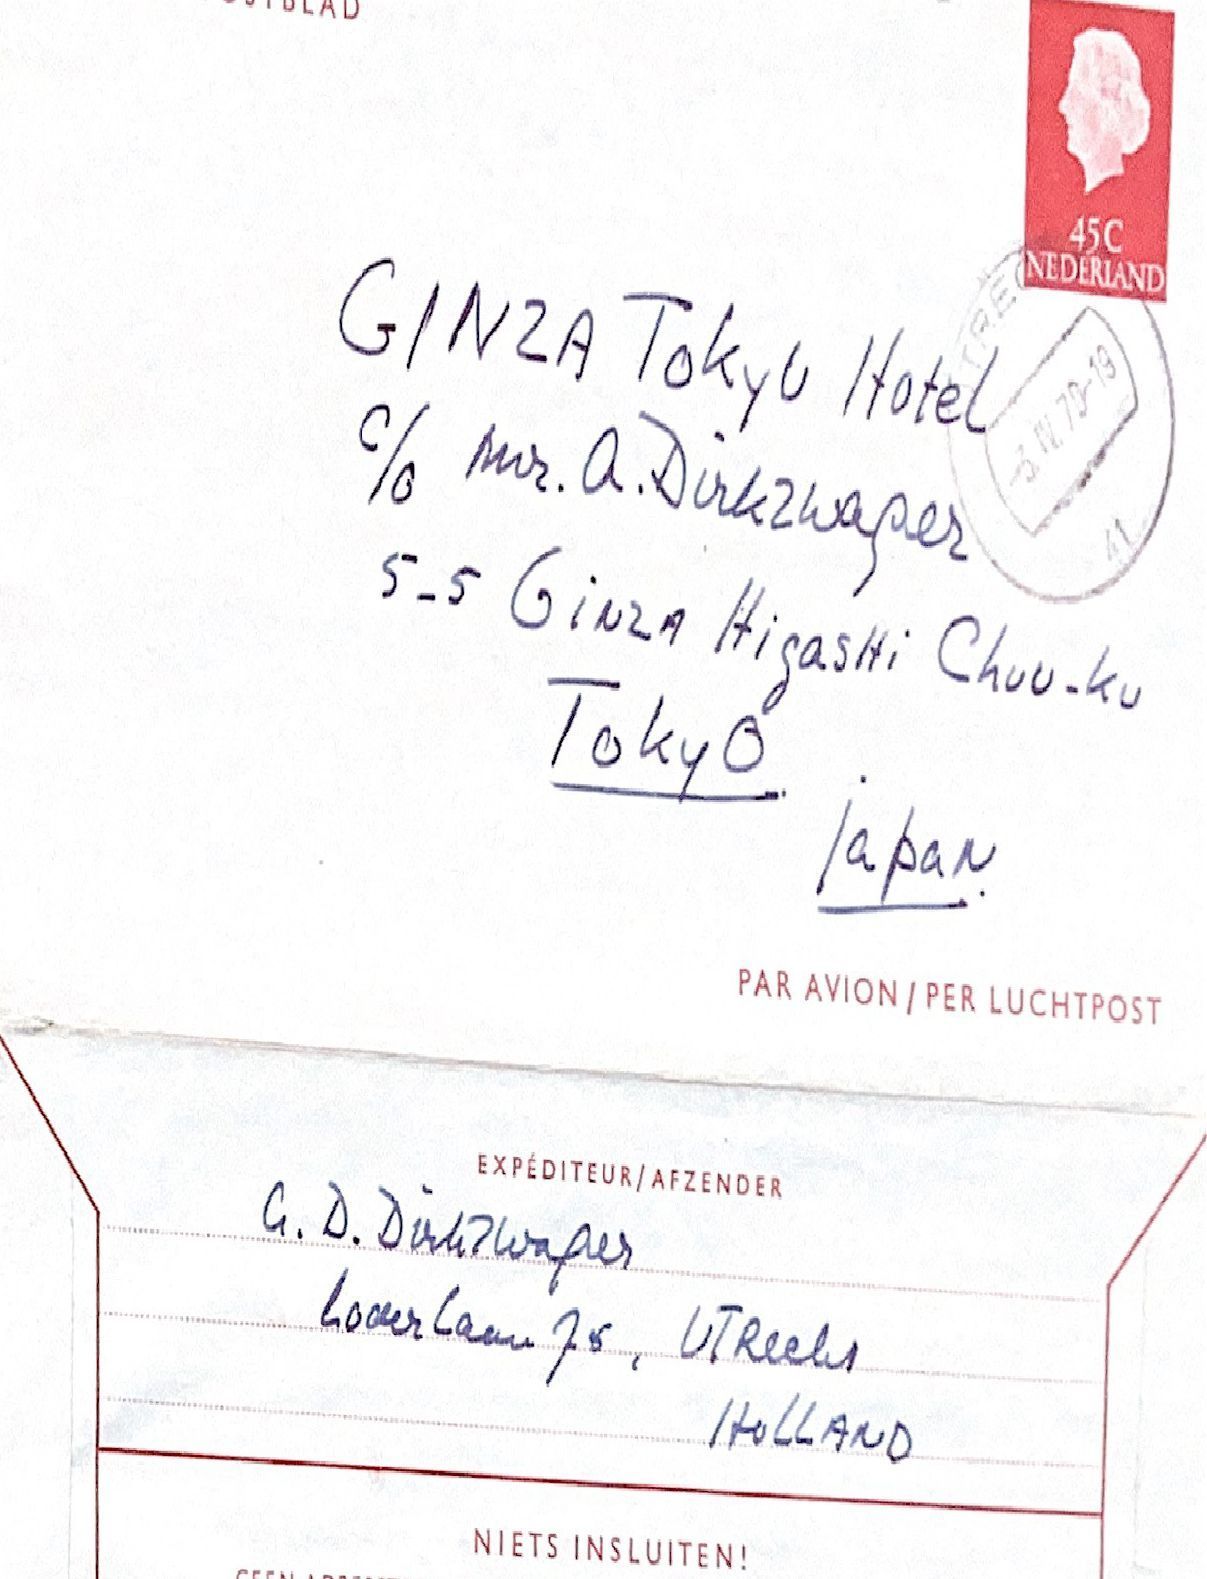 POSTBLAD
45C
NEDERLAND
UTRECHT
-3.IV.70-19
41
GINZA Tokyu Hotel
c/o mr. A. Dirkzwager
5-5 GINZA HigasHi Chuu-ku
Tokyo
japan.
PAR AVION / PER LUCHTPOST
EXPÉDITEUR/AFZENDER
G. D. Dirkzwager
laan 75, UTRecht
HoLLAND
NIETS INSLUITEN!
GEEN